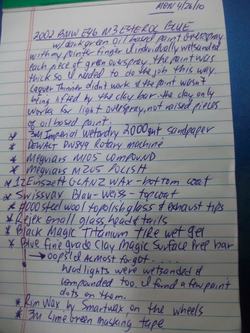 MON 4/26/10
2002 BMW E46 M3 ESTORIL BLUE
w/ dark green oil based paint overspray
with my pointer finger I individually wetsanded
each piece of green overspray. the paint was
thick so I needed to do the job this way.
Laquer thinner didn't work & the paint wasn't
being lifted by the clay bar. the clay only
works for light overspray, not raised pieces
of oil based paint.
* 3M Imperial wetordry 2000 grit sandpaper
* DeWalt DW849 Rotary machine
* Meguiars M105 COMPOUND
* Meguiars M205 POLISH
* 1Z Einszett Glanz Wax - bottom coat
* Swissvax Blau-Weiss - topcoat
* #0000 steel wool to polish glass & exhaust tips
* Rejex on all glass, head & tails
* Black Magic Titanium tire wet gel
* Blue fine grade Clay Magic Surface Prep bar
→ oops! I almost forgot....
headlights were wetsanded &
compounded too. I found a few paint
dots on them.
* Rim Wax by Smartwax on the wheels
* 3M lime green masking tape